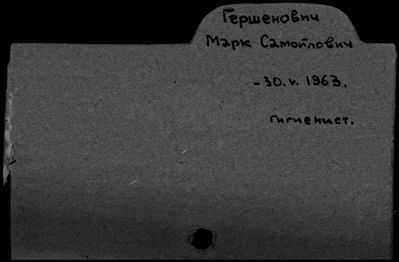 Гершенович
Марк Самойлович
- 30.v.1963.
гигиенист.